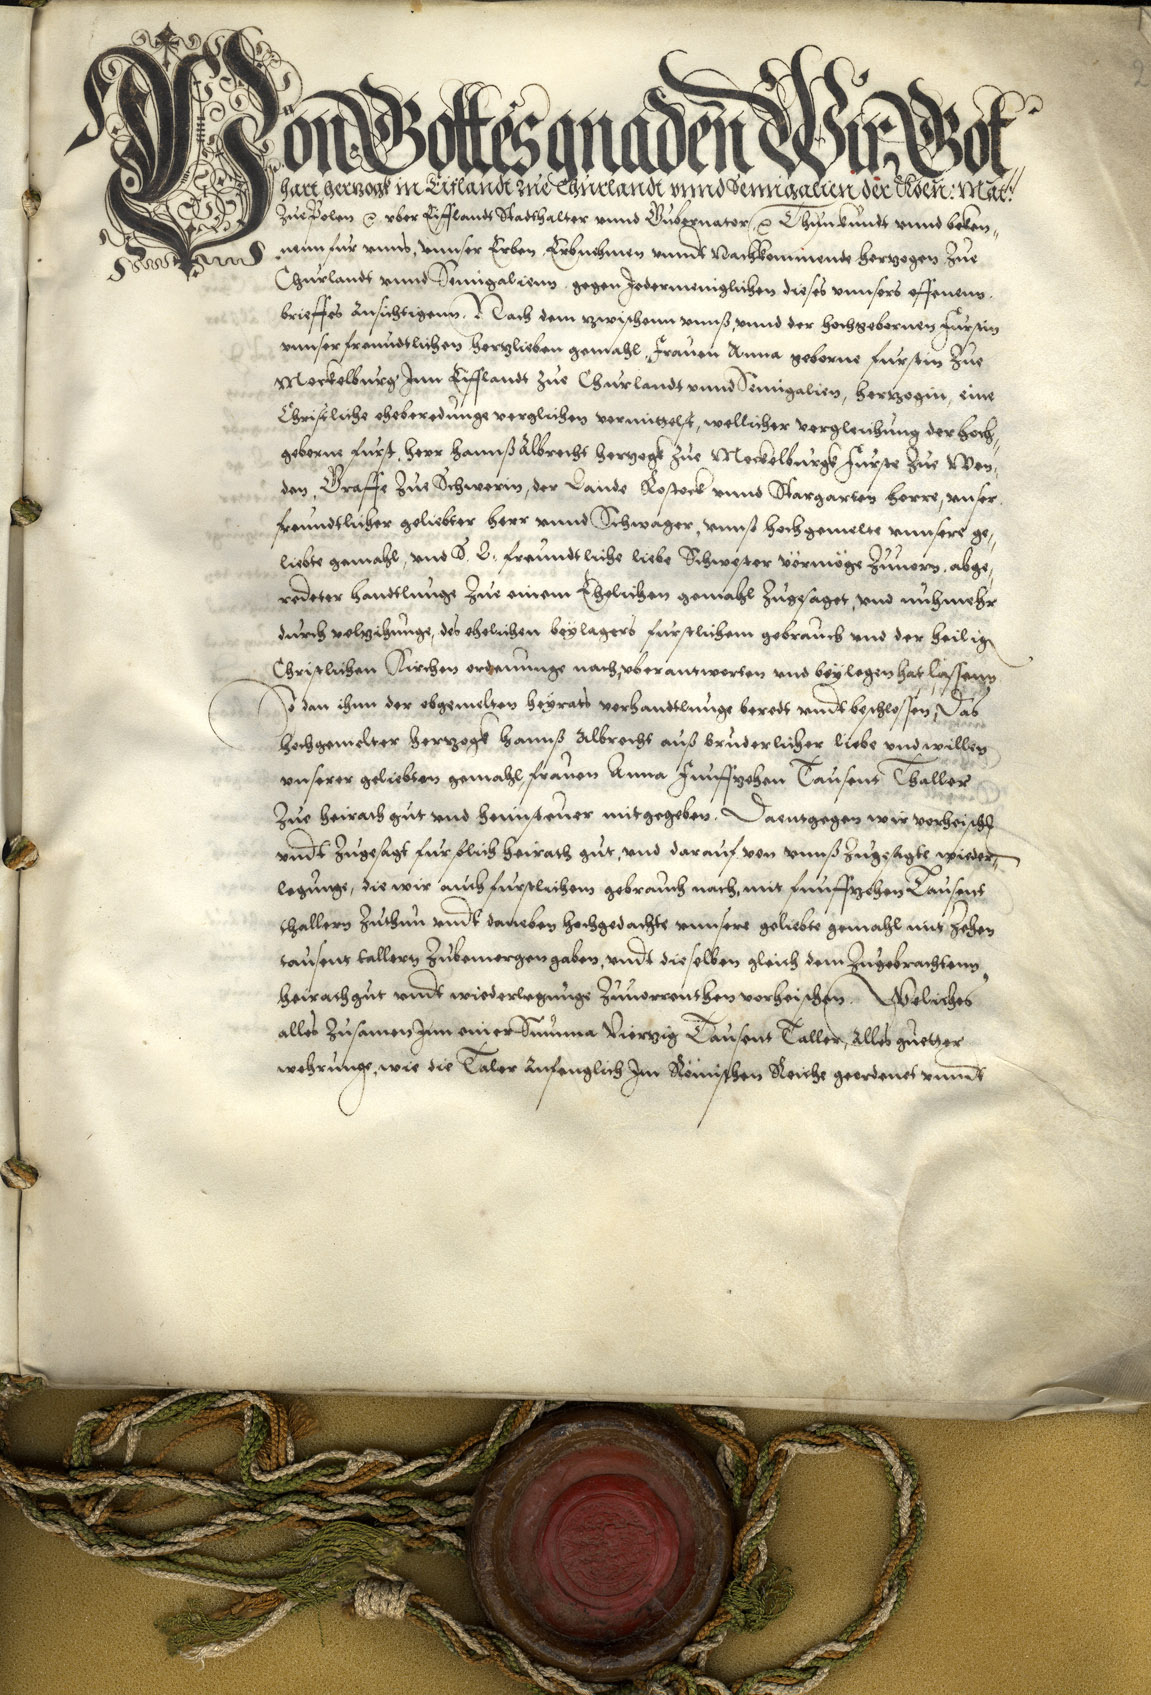 Von Gottes gnaden Wir Got
hart Hertzogk in Liflandt zue Churlandt vnnd Semigalien der Koen: Mat:
zue Polen ꝛc. vber Eifflandt Stadthalter vnnd Gubernator, ꝛc Thun kundt vnnd beken-
nenn fur vnns, vnnser Erben Erbnehmen vnndt Nachkommende Hertzogen zue
Churlandt vnnd Semigalienn gegen Jedermenniglichen dieses vnnsers offenenn
brieffes ansichtigenn. Nach dem zwischenn vnnß, vnnd der hochgebornen Furstin
vnnser freundtlichen hertzlieben gemahl, Frauen Anna geborne furstin zue
Meckelburg Jnn Eifflandt zue Churlandt vnnd Semigalien, hertzogin, eine
Christliche eheberedunge verglichen vermittelst, wellicher vergleichung der hoch-
geborne furst, herr hannß Albrecht hertzogk zue Meckelburgk Furste zue Wen-
den, Graffe zue Schwerin, der Lande Rostock vnnd Stargarten herre, vnser
freundtlicher geliebter herr vnnd Schwager, vnnß hochgemelte vnnsere ge-
liebte gemahl, vnd S. L. freundtliche liebe Schwester vormöge zuuorn abge-
redeter handtlunge zue einem Ehelichen gemahl zugesaget, vnd nuhmehr
durch volzihunge, des ehelichen beÿlagers furstlichem gebrauch vnd der heilig
Christlichen Kirchen ordenunge nach, vberantworten vnd beÿlegen hat lassenn
So dan ihnn der obgemelten heÿrats verhandtlunge beredt vndt beschlossen, Das
hochgemelter hertzogk hannß Albrecht auß bruderlicher liebe vnd willen
vnserer geliebten gemahl, frauen Anna Funffzehen Tausent Thaller
zue heirath gut vnd heimsteuer mitgegeben. Daentgegen wir vorheischt
vndt zugesagt fur solich heirath gut, vnd darauf von vnnß zugesagte wieder-
legunge, die wir auch furstlichem gebrauch nach, mit funffzehen Tausent
thallern zuthun vndt daneben hochgedachte vnnsere geliebte gemahl mit zehen
tausent tallern zubemorgengaben, vndt dieselben gleich dem zugebrachtenn
heirathgut vndt wiederlegunge zuuorrenthen vorheischen. Weliches
alles zusamen Jnn einer Summa Viertzig Tausent Taller, alles guetter
wehrunge, wie die Taler anfenglich Jm Römischen Reiche geordenet vnndt